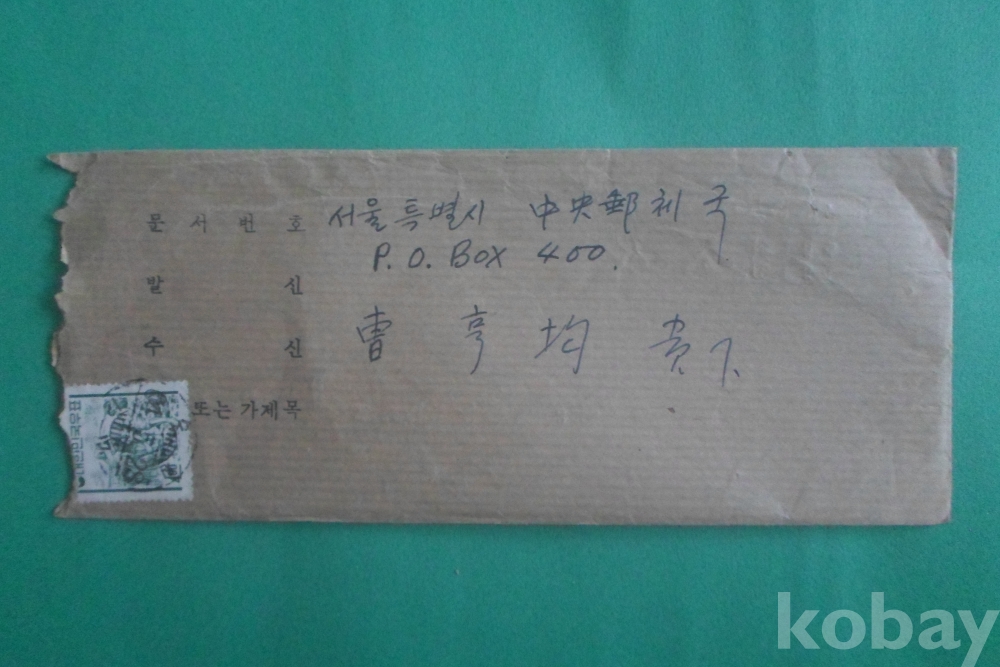 문서번호 서울특별시 中央郵체국
P.O. BOX 400.
발 신
수 신 曺亨均 貴下
또는 가제목
kobay